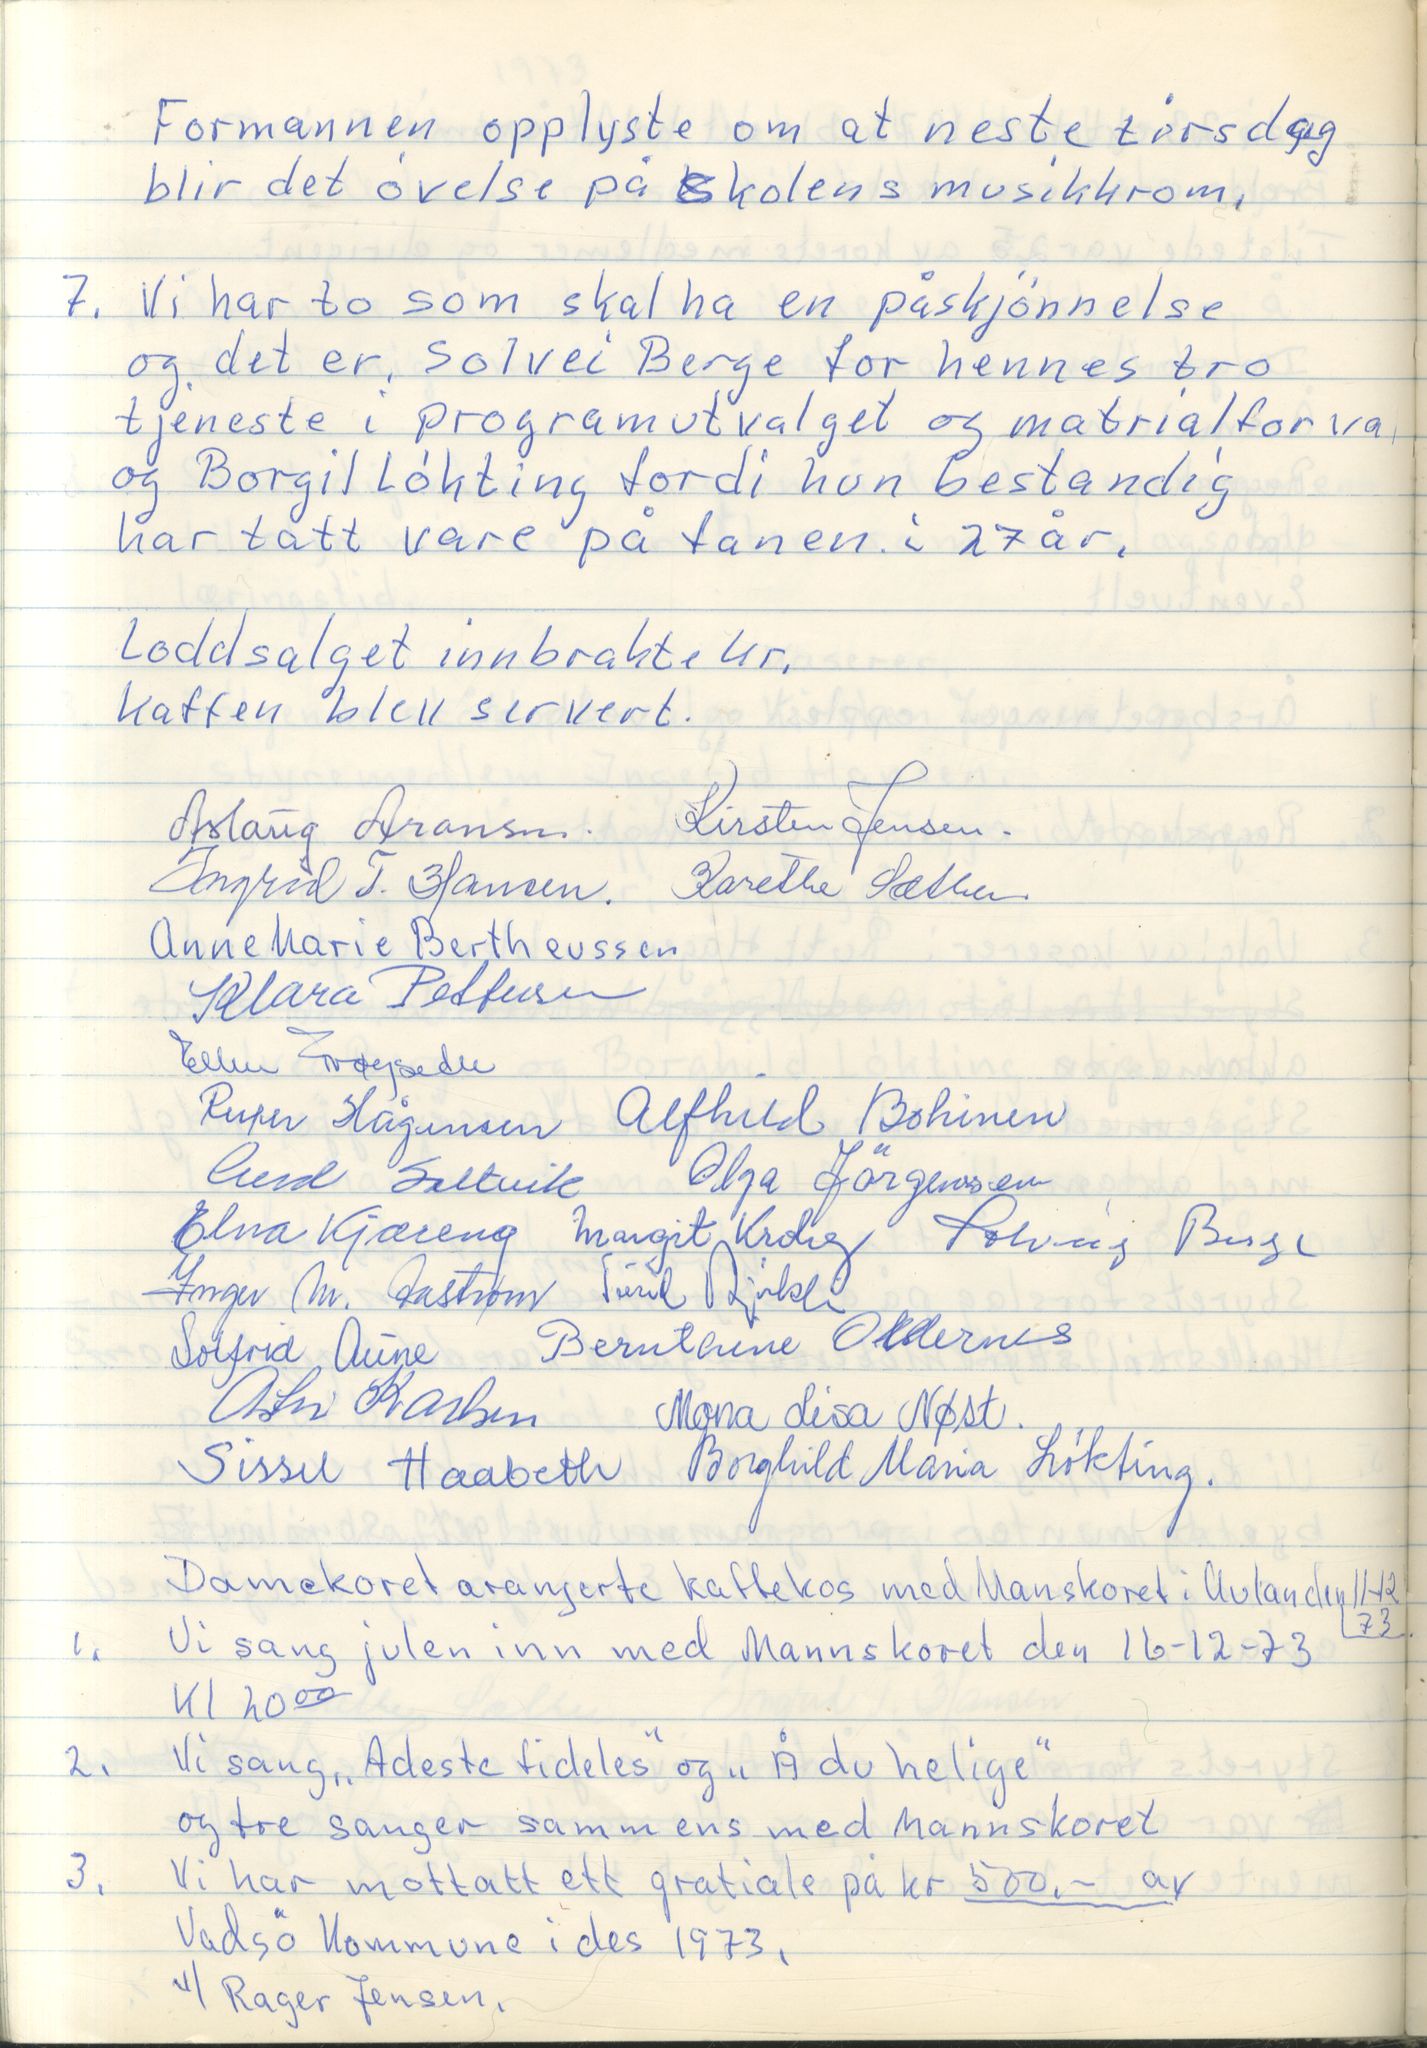 Formannen opplyste om at neste tirsdag
blir det óvelse på skolens musikkrom.
7. Vi har to som skal ha en påskjónnelse
og det er, Solvei Berge for hennes tro
tjeneste i programutvalget og matrialforva,
og Borgil Lókting fordi hun bestandig
har tatt vare på fanen i 27 år.
Loddsalget innbrakte kr.
Kaffen blev servert.
Aslaug Aronsen. Kirsten Jensen.
Ingrid T. Hansen. Karethe Sæther
Anne Marie Bertheussen
Klara Pettersen
Ellen
Hågensen Alfhild Bohinen
Aud Saltvik Olga Jörgenssen
Elna Kjæreng Margit Krog Solveig Berge
Inger M. Turid
Solfrid Aune Bernthine Oldernes
Karlsen Mona Lisa Nøst.
Sissel Haabeth Borghild Maria Lökting.
Damekoret aranjerte kaffekos med Manskoret i Aulan den 11-12
73.
1. Vi sang julen inn med Mannskoret den 16-12-73
Kl 20 00
2. Vi sang „Adeste fideles" og „Å du helige"
og tre sanger sammens med Mannskoret
3. Vi har mottatt ett gratiale på kr 500.- av
Vadsö Kommune i des 1973.
v/ Rager Jensen.